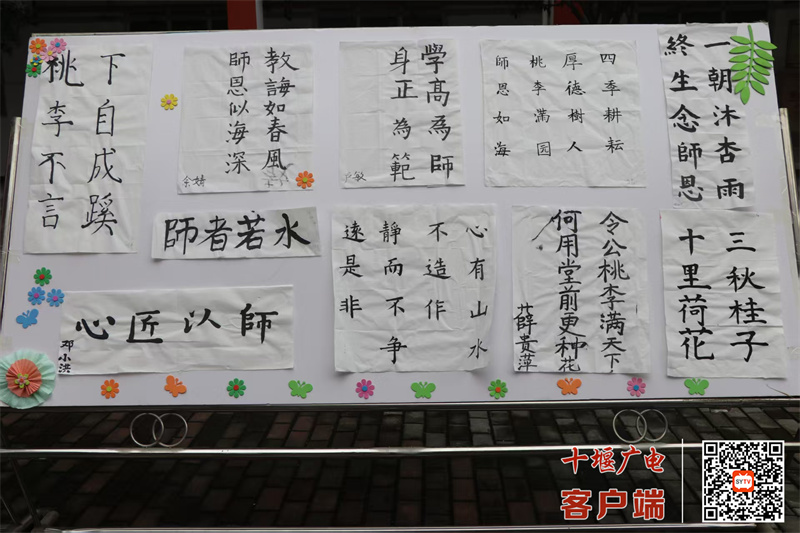 桃李不言
下自成蹊
教誨如春風
師恩似海深
學高為師
身正為範
四季耕耘
厚德樹人
桃李满园
師恩如海
一朝沐杏雨
終生念師恩
師者若水
師以匠心
邓小洪
心有山水
不造作
静而不争
遠是非
令公桃李满天下
何用堂前更种花
薛贵萍
三秋桂子
十里荷花
十堰广电
客户端
SYTV